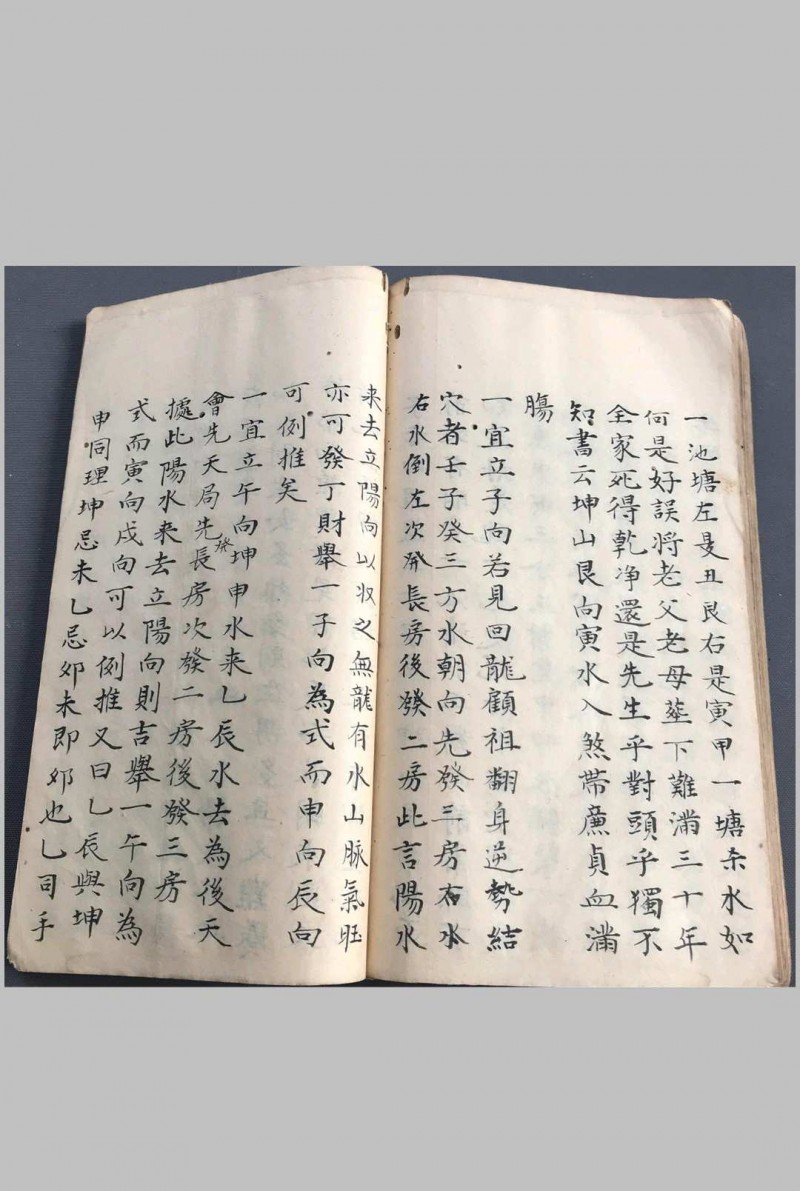 一池塘左是丑艮右是寅甲一塘杀水如
何是好誤将老父老母塟下難滿三十年
全家死得乾净還是先生乎對頭乎獨不
知書云坤山艮向寅水入煞帶廉貞血滿
腸
一宜立子向若見回龍顧祖翻身逆勢結
穴者壬子癸三方水朝向先發三房右水
右水倒左次發長房後發二房此言陽水
来去立陽向以收之無龍有水山脉氣旺
亦可發丁財舉一子向為式而申向辰向
可例推矣
一宜立午向坤申水来乙辰水去為後天
會先天局先發長房次發二房後發三房
據此陽水来去立陽向則吉舉一午向為
式而寅向戌向可以例推又曰乙辰與坤
申同理坤忌未乙忌夘未即夘也乙司手